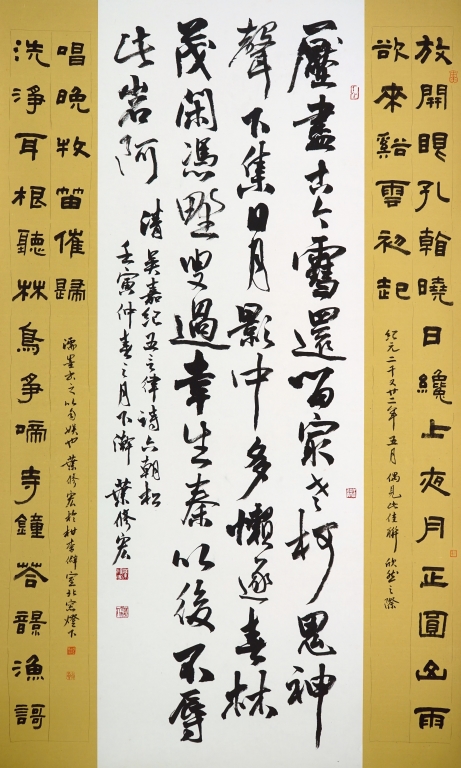 放開眼孔翰曉日纔上夜月正圓山雨
欲來谿雲初起
紀元二千又廿二年五月偶見此佳聯欣然之際
壓盡古今雪還留冣老柯鬼神
聲下集日月影中多懶逐春林
茂閑憑野叟過幸生秦以後不辱
此岩阿
清吳嘉紀五言律詩六朝松
壬寅仲春之月下澣葉修宏
洗淨耳根聽林鳥爭啼寺鐘答韻漁謌
唱晚牧笛催歸
濡墨書之以自娛也葉修宏於柑香僻室北窗燈下